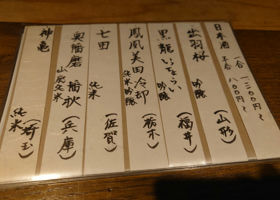 日本酒 一合 一二〇〇円〜
五合 八〇〇円〜
出羽桜 吟醸 (山形)
黒龍 いっちょらい 吟醸 (福井)
鳳凰美田 冷卸 純米吟醸 (栃木)
七田 純米 (佐賀)
奥播磨 播秋 山廃純米 (兵庫)
神亀 純米 (埼玉)